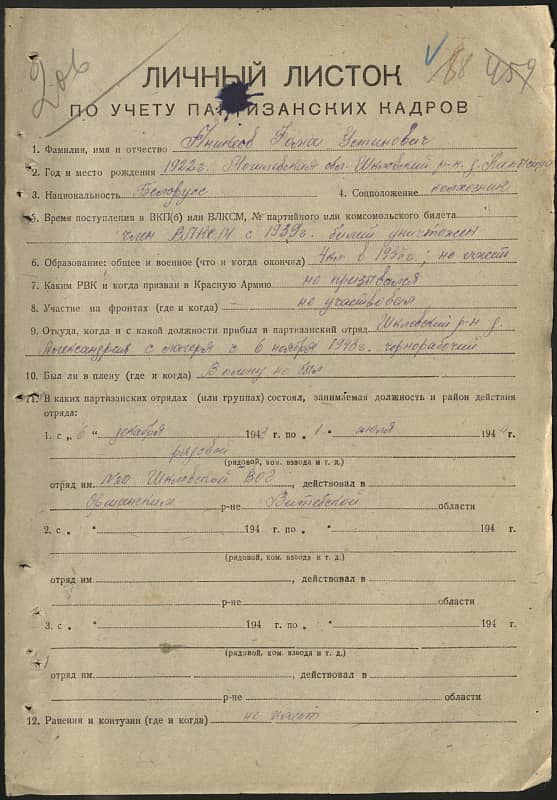 206
88 459
ЛИЧНЫЙ ЛИСТОК
ПО УЧЕТУ ПАРТИЗАНСКИХ КАДРОВ
1. Фамилия, имя и отчество Устинович
2. Год и место рождения 1922г. Могилевская обл. Шкловский р-н. д.
3. Национальность Белорусс 4. Соцположение колхозник
5. Время поступления в ВКП(б) или ВЛКСМ, № партийного или комсомольского билета
член ВЛКСМ с 1939г. билет уничтожен
6. Образование: общее и военное (что и когда окончил) 4кл в 1936г.; не имеет
7. Каким РВК и когда призван в Красную Армию не призывался
8. Участие на фронтах (где и когда) не участвовал
9. Откуда, когда и с какой должности прибыл в партизанский отряд Шкловский р-н д.
Александрия с лагеря с 6 ноября 1943г. чернорабочий
10. Был ли в плену (где и когда) В плену не был
11. В каких партизанских отрядах (или группах) состоял, занимаемая должность и район действия
отряда:
1. с „ 6 “ декабря 1943 г. по „ 1 “ июля 1944 г.
рядовой
(рядовой, ком. взвода и т. д.)
отряд им. №20 Шкловской ВОГ, действовал в
Оршанским р-не Витебской области
2. с „ “ 194 г. по „ “ 194 г.
(рядовой, ком. взвода и т. д.)
отряд им., действовал в
р-не области
3. с „ “ 194 г. по „ “ 194 г.
(рядовой, ком. взвода и т. д.)
отряд им., действовал в
р-не области
12. Ранения и контузии (где и когда) не имеет